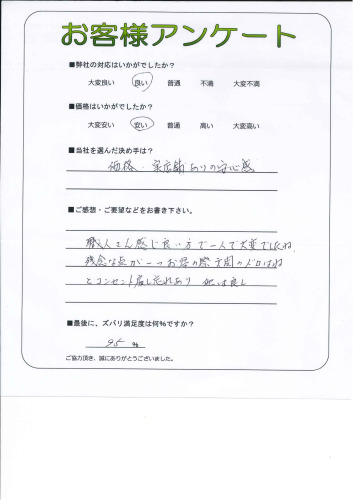 お客様アンケート
■弊社の対応はいかがでしたか？
大変良い 良い 普通 不満 大変不満
■価格はいかがでしたか？
大変安い 安い 普通 高い 大変高い
■当社を選んだ決め手は？
価格・実店舗ありの安心感
■ご感想・ご要望などをお書き下さい。
職人さん感じ良い方で一人で大変でしたね
残念な点が一つお昼の際玄関のドロはね
とコンセント戻し忘れあり 他は良し
■最後に、ズバリ満足度は何%ですか？
95 %
ご協力頂き、誠にありがとうございました。